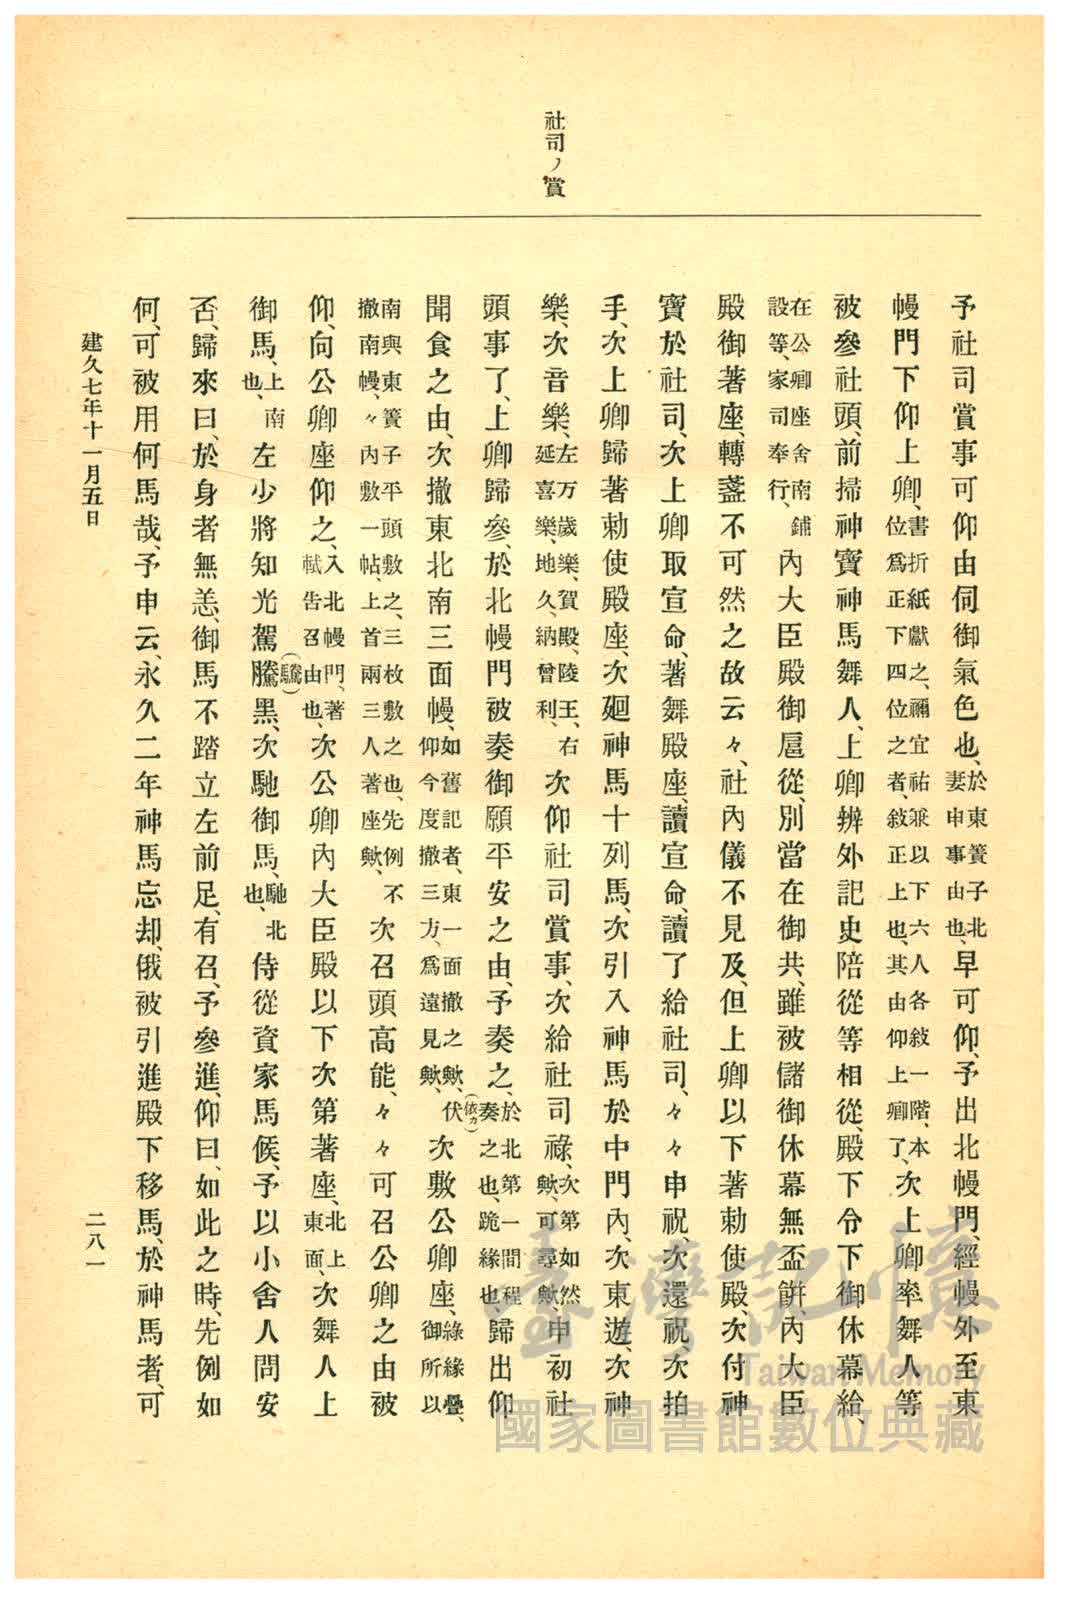 社司ノ賞
予社司賞事可仰由伺御氣色也、於東簀子北妻申事由也、早可仰、予出北幔門、經幔外至東
幔門下仰上卿、書折紙獻之、禰宜祐兼以下六人各敍一階、本位爲正下四位之者、敍正上也、其由仰上卿了、次上卿率舞人等
被參社頭、前掃神寶神馬舞人、上卿辨外記史陪從等相從、殿下令下御休幕給、
在公卿座舍南鋪設等、家司奉行、內大臣殿御扈從、別當在御共、雖被儲御休幕無盃餅、內大臣
殿御著座、轉盞不可然之故云々、社內儀不見及、但上卿以下著勅使殿、次付神
寶於社司、次上卿取宣命、著舞殿座、讀宣命、讀了給社司、々々申祝、次還祝次拍
手、次上卿歸著勅使殿座、次廻神馬十列馬、次引入神馬於中門內、次東遊、次神
樂、次音樂、左万歲樂、賀殿、陵王、右延喜樂、地久、納曾利、次仰社司賞事、次給社司祿、次第如然歟、可尋歟、申初社
頭事了、上卿歸參、於北幔門被奏御願平安之由、予奏之、於北第一間程奏之也、跪緣也、歸出仰
聞食之由、次撤東北南三面幔、如舊記者、東一面撤之歟、伏(依カ)仰今度撤三方、爲遠見歟、次敷公卿座、綠緣疊、御所以
南與東簀子平頭敷之、三枚敷之也、先例不撤南幔、々內敷一帖、上首兩三人著座歟、次召頭、高能、々々可召公卿之由被
仰、向公卿座仰之、入北幔門、著軾告召由也、次公卿內大臣殿以下次第著座、北上東面、次舞人上
御馬、上南也、左少將知光駕騰(驣)黑、次馳御馬、馳北也、侍從資家馬候、予以小舍人問安
否、歸來曰、於身者無恙、御馬不踏立左前足、有召、予參進、仰曰、如此之時、先例如
何、可被用何馬哉、予申云、永久二年神馬忘却、俄被引進殿下移馬、於神馬者、可
建久七年十一月五日
二八一
臺灣記憶
Taiwan Memory
國家圖書館數位典藏